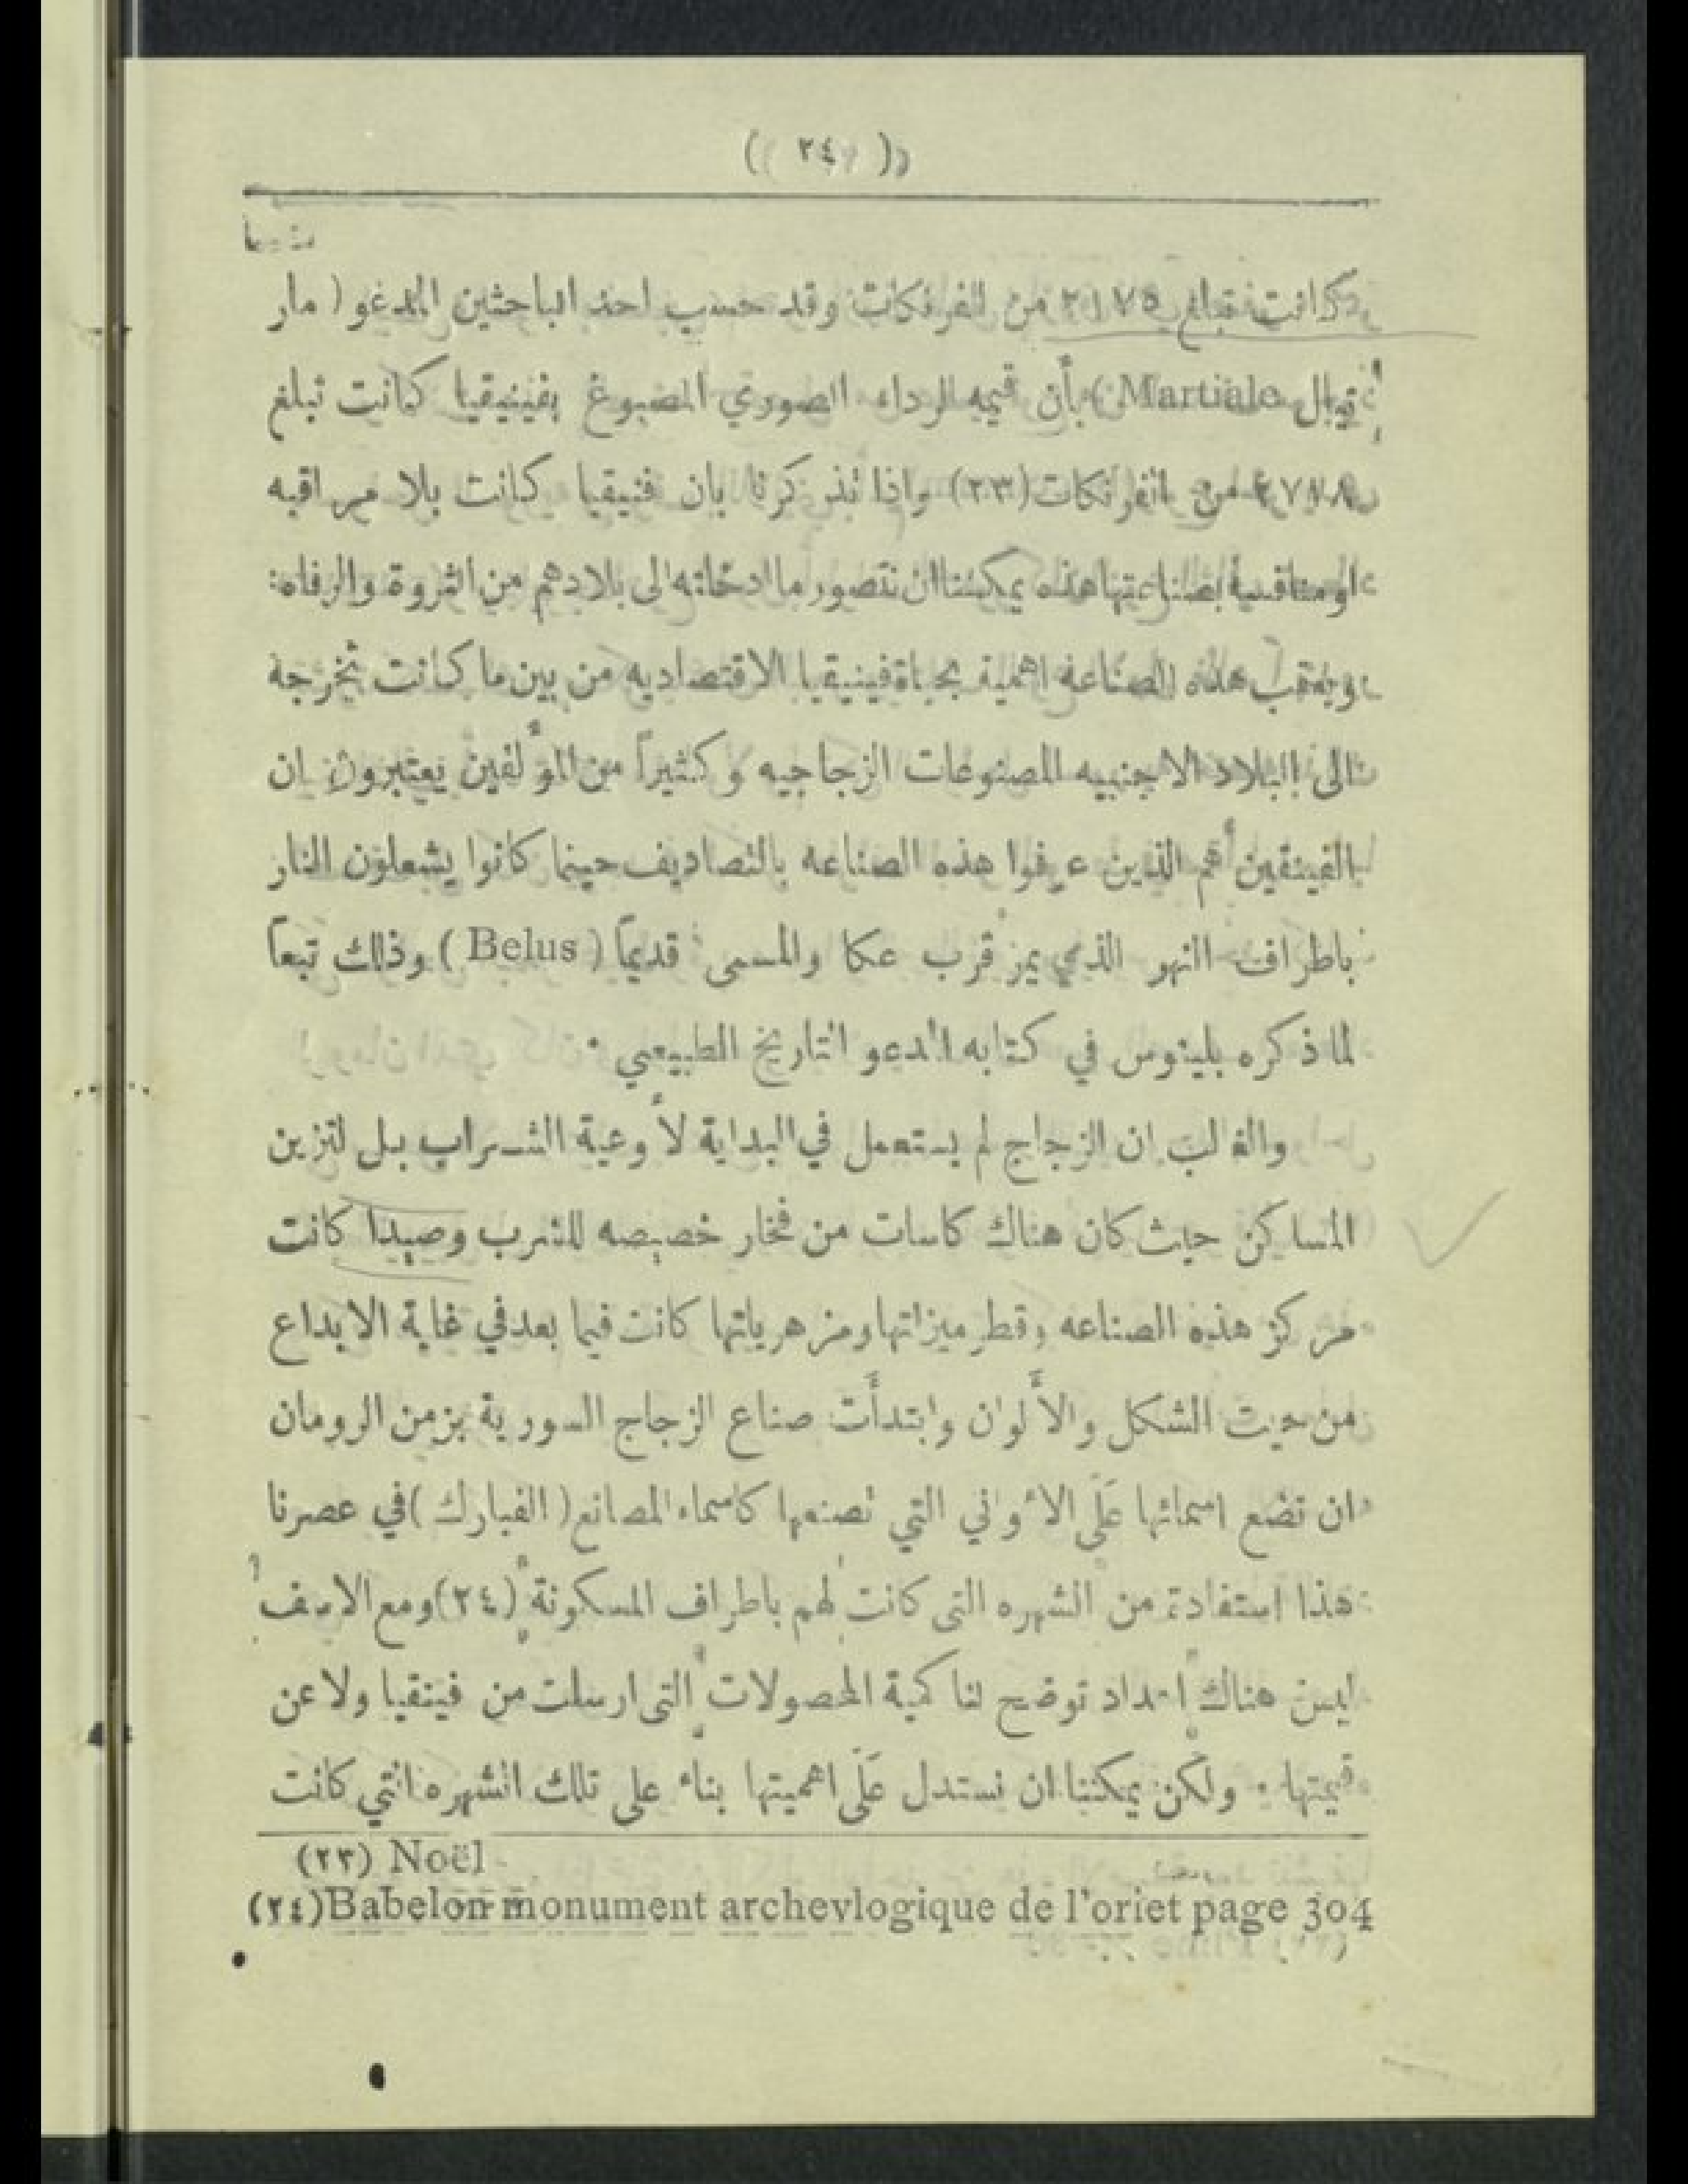 ( ٢٤ )
كانت تبلغ ٢١٧٥ من الفرنكات وقد حسب احد الباحثين المدعو ( مار
تيال Martiale ) بأن قيمه الرداء الصوري المصبوغ بفينيقيا كانت تبلغ
من الفرنكات (٢٣) واذا تذكرنا بان فنيقيا كانت بلا مراقبه
او منافسة بصناعتها هذه يمكننا ان نتصور ما ادخلته الى بلادهم من الثروة والرفاه :
ويعقب هذه الصناعة اهمية بحياة فينيقيا الاقتصاديه من بين ما كانت تخرجة
الى البلاد الاجنبيه المصنوعات الزجاجيه وكثيراً من المؤلفين يعتبرون ان
الفينقين هم الذين عرفوا هذه الصناعه بالتصاديف حينما كانوا يشعلون النار
باطراف النهر الذي يمر قرب عكا والمسمى قديماً ( Belus ) وذلك تبعاً
لما ذكره بلينوس في كتابه المدعو التاريخ الطبيعي .
والغالب ان الزجاج لم يستعمل في البداية لأوعية الشراب بل لتزين
المساكن حيث كان هناك كاسات من فخار خصيصه للشرب وصيدا كانت
مركز هذه الصناعه وقطرميزاتها ومزهرياتها كانت فيما بعد في غاية الابداع
من حيت الشكل والألوان وابتدأت صناع الزجاج السورية بزمن الرومان
ان تضع اسمائها عَلَى الأواني التي تصنعها كاسماء المصانع ( الفبارك ) في عصرنا
هذا استفادة من الشهره التى كانت لهم باطراف المسكونة (٢٤) ومع الاسف
ليس هناك اعداد توضح لنا كمية المحصولات التى ارسلت من فينقيا ولا عن
قيمتها . ولكن يمكننا ان نستدل عَلَى اهميتها بناء على تلك الشهره التي كانت
(٢٣) Noël
(٢٤) Babelon monument archevlogique de l'oriet page 304